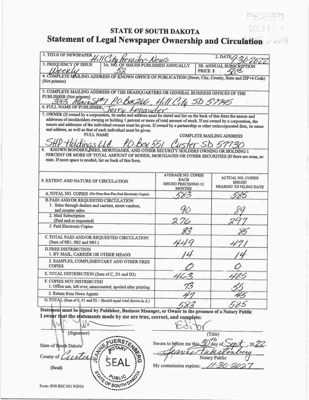 STATE OF SOUTH DAKOTA
Statement of Legal Newspaper Ownership and Circulation
1. TITLE OF NEWSPAPER Hill City Prevailer News
2. DATE 9-30-2022
3. FREQUENCY OF ISSUE Weekly
3A. NO. OF ISSUES PUBLISHED ANNUALLY 52
3B. ANNUAL SUBSCRIPTION PRICE $
4. COMPLETE MAILING ADDRESS OF KNOWN OFFICE OF PUBLICATION (Street, City, County, State and ZIP+4 Code)
(Not printers)
5. COMPLETE MAILING ADDRESS OF THE HEADQUARTERS OR GENERAL BUSINESS OFFICES OF THE
PUBLISHER (Not printer)
P.O. Box 266, Hill City, SD 57745
6. FULL NAME OF PUBLISHER
7. OWNER (If owned by a corporation, its name and address must be stated and list on the back of this form the names and
addresses of stockholders owning or holding 1 percent or more of total amount of stock. If not owned by a corporation, the
names and addresses of the individual owners must be given. If owned by a partnership or other unincorporated firm, its name
and address, as well as that of each individual must be given.
FULL NAME
COMPLETE MAILING ADDRESS
SHP Holdings LLC P.O. Box 551 Custer SD 57730
8. KNOWN BONDHOLDERS, MORTGAGEES, AND OTHER SECURITY HOLDERS OWNING OR HOLDING 1
PERCENT OR MORE OF TOTAL AMOUNT OF BONDS, MORTGAGES OR OTHER SECURITIES (If there are none, so
state. If more space is needed, list on back of this form.
9. EXTENT AND NATURE OF CIRCULATION
AVERAGE NO. COPIES EACH ISSUED PRECEDING 12 MONTHS
ACTUAL NO. COPIES ISSUED NEAREST TO FILING DATE
A. TOTAL NO. COPIES 583 585
B. PAID AND/OR REQUESTED CIRCULATION
1. Sales through dealers and carriers, street vendors, and counter sales. 90 89
2. Mail Subscription (Paid and or requested) 276 297
3. Paid Electronic Copies 83 85
C. TOTAL PAID AND/OR REQUESTED CIRCULATION
(Sum of 9B1, 9B2 and 9B3) 449 471
D. FREE DISTRIBUTION
1. BY MAIL, CARRIER OR OTHER MEANS 14 14
2. SAMPLES, COMPLIMENTARY AND OTHER FREE COPIES 0 0
E. TOTAL DISTRIBUTION (Sum of C, D1 and D2) 463 485
F. COPIES NOT DISTRIBUTED
1. Office use, left over, unaccounted, spoiled after printing 73 55
2. Return from News Agents 47 45
G. TOTAL 583 585
Statement must be signed by Publisher, Business Manager, or Owner in the presence of a Notary Public
I swear that the statements made by me are true, correct, and complete:
Editor
(Signature)
(Title)
State of South Dakota
County of Custer
(Seal)
NOTARY
SEAL
PUBLIC
SOUTH DAKOTA
Sworn to before me this 30th day of Sept, 2022
Notary Public
My commission expires: 11-30-2027